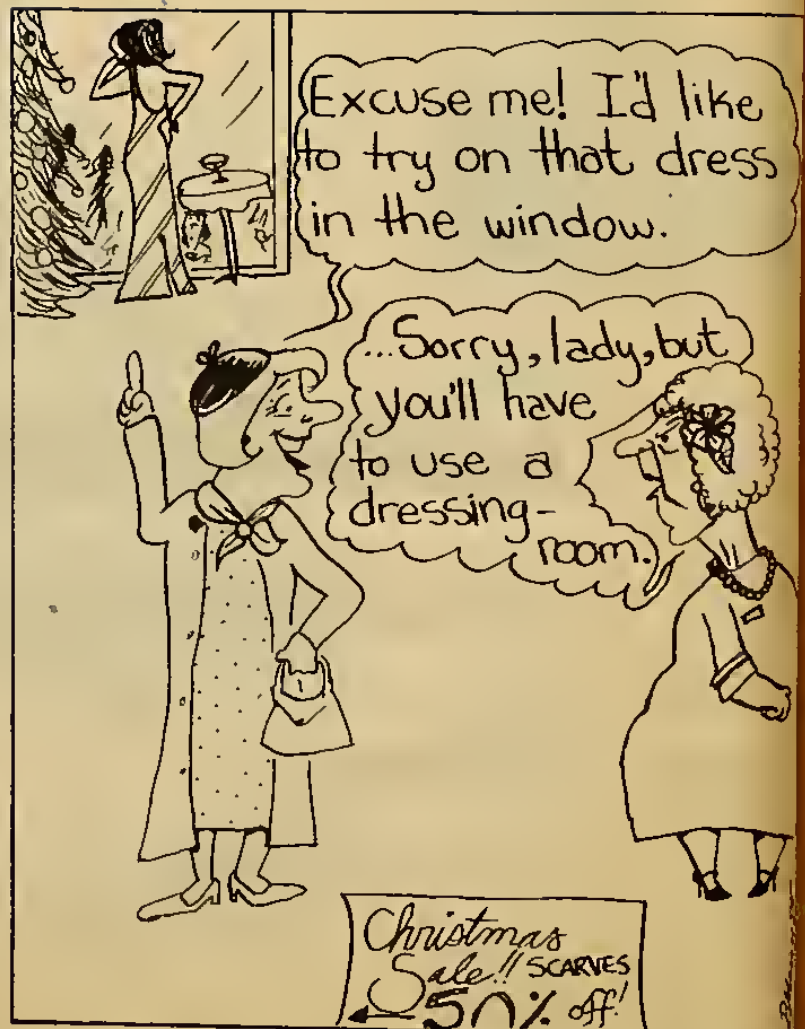 Excuse me! I'd like
to try on that dress
in the window.
...Sorry, lady, but
you'll have
to use a
dressing-
room.
Christmas
Sale!! SCARVES
50% off!